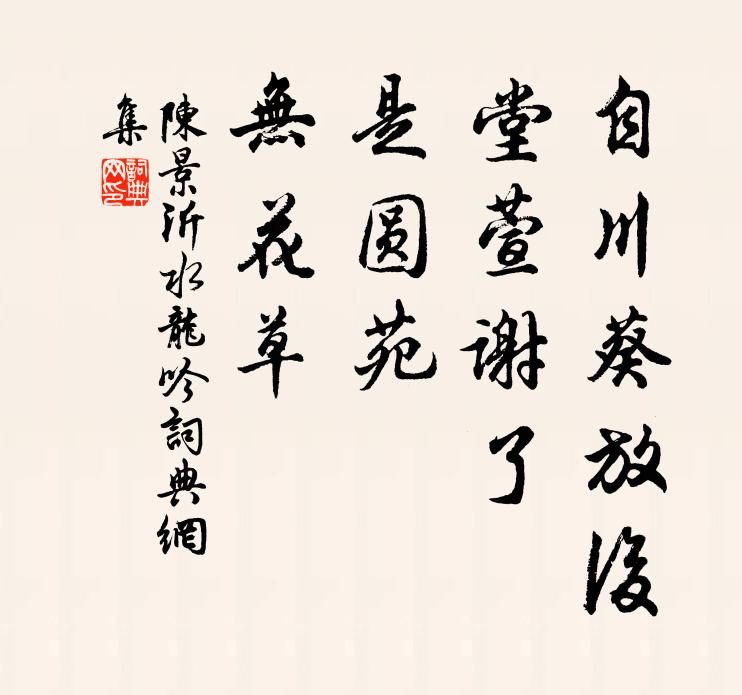 自川葵放後
堂萱謝了
是圓苑
無花草
陳景沂水龍吟詞典網
集
詞典網印